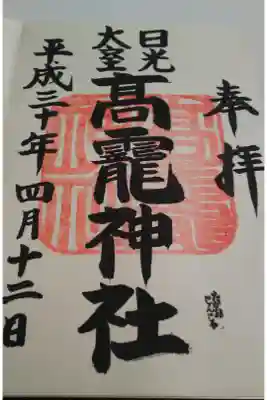 奉拝
日光
大室
高龗神社
平成三十年四月十二日